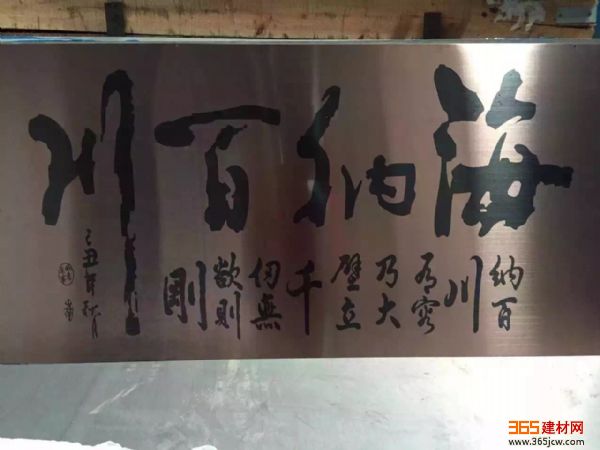 海纳百川
纳百
川
有容
乃大
壁立
千
仞無
欲則
剛
己丑年秋月
365建材网
www.365jcw.com